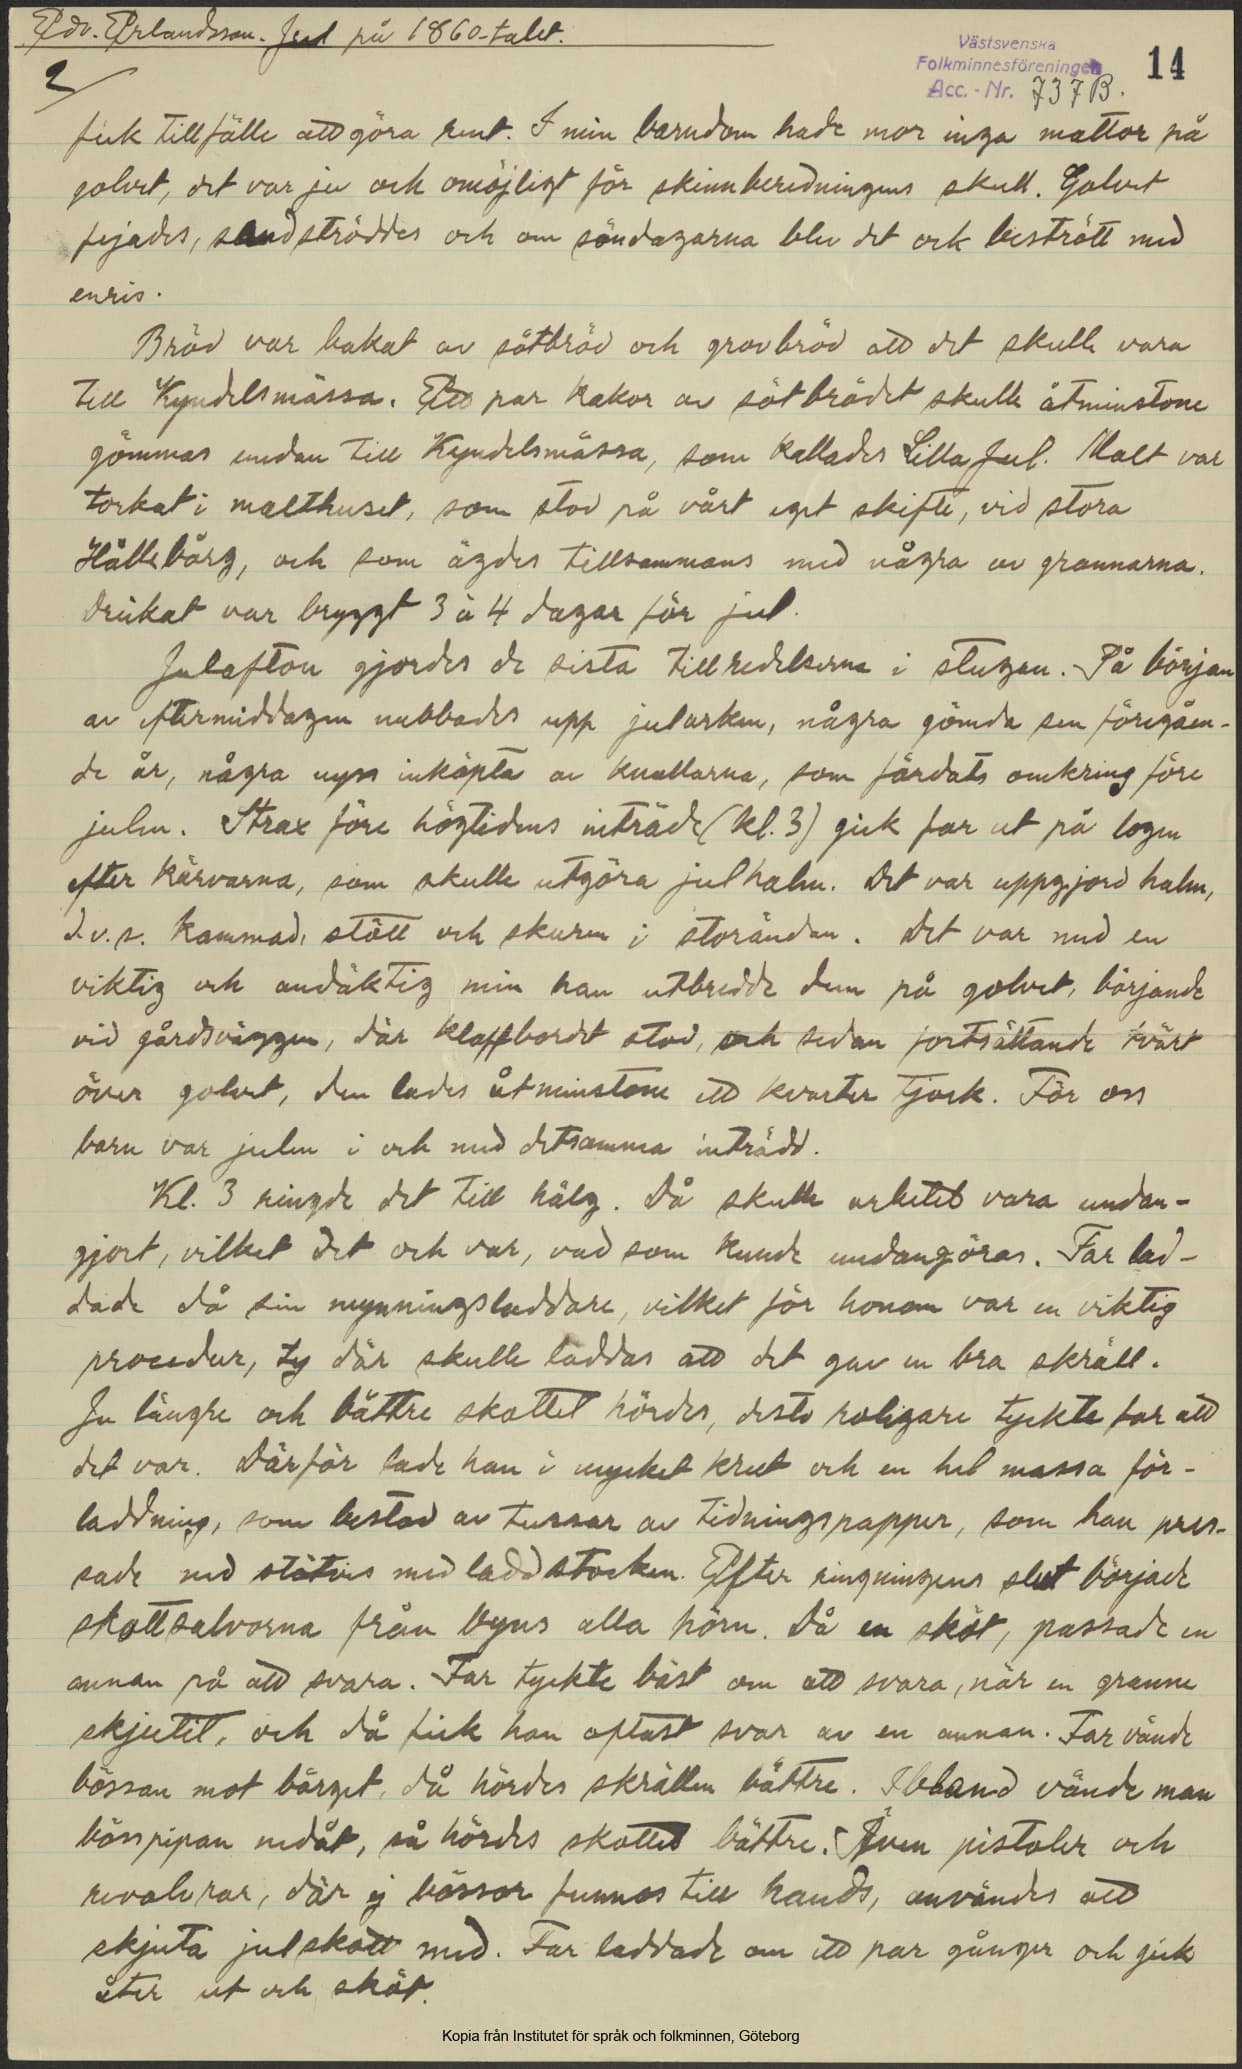 Edv. Erlandsson. Jul på 1860-talet.
Västsvenska
Folkminnesföreningen
Acc.-Nr. 737B.
14
2
fick tillfälle att göra rent. I min barndom hade mor inga mattor på
golvet, det var ju och omöjligt för skinnberedningens skull. Golvet
fejades, sandströddes och om söndagarna blev det ock bestrött med
enris.
Bröd var bakat av sötbröd och grovbröd att det skulle vara
till Kyndelsmässa. Ett par kakor av sötbrödet skulle åtminstone
gömmas undan till Kyndelsmässa, som kallades Lilla Jul. Malt var
torkat i malthuset, som stod på vårt eget skifte, vid stora
Hållebärg, och som ägdes tillsammans med några av grannarna.
Drickat var bryggt 3 à 4 dagar för jul.
Julafton gjordes de sista tillredelserna i stugan. På början
av eftermiddagen nubbades upp jularken, några gömda sen föregåen-
de år, några nyss inköpta av knallarna, som färdats omkring före
julen. Strax före högtidens inträde (kl. 3) gick far ut på logen
efter kärvarna, som skulle utgöra julhalm. Det var uppgjord halm,
d.v.s. kammad, stött och skuren i storändan. Det var med en
viktig och andäktig min han utbredde dem på golvet, började
vid gårdsväggen, där klaffbordet stod, och sedan fortsättande tvärt
över golvet, den lades åtminstone ett kvarter tjock. För oss
barn var julen i och med detsamma inträdd.
Kl. 3 ringde det till hälg. Då skulle arbetet vara undan-
gjort, vilket det och var, vad som kunde undangöras. Far lad-
dade då sin mynningsladdare, vilket för honom var en viktig
procedur, ty där skulle laddas att det gav en bra skräll.
Ju längre och bättre skottet hördes, desto roligare tyckte far att
det var. Därför lade han i mycket krut och en hel massa för-
laddning, som bestod av tussar av tidningspapper, som han pres-
sade ned stötvis med laddstocken. Efter ringningens slut började
skottsalvorna från byns alla hörn. Då en sköt, passade en
annan på att svara. Far tyckte bäst om att svara, när en granne
skjutit, och då fick han oftast svar av en annan. Far vände
bössan mot bärget, då hördes skrällen bättre. Ibland vände man
bösspipan nedåt, så hördes skottet bättre. Även pistoler och
revolvrar, där ej bössor funnos till hands, användes att
skjuta julskott med. Far laddade om ett par gånger och gick
åter ut och sköt.
Kopia från Institutet för språk och folkminnen, Göteborg